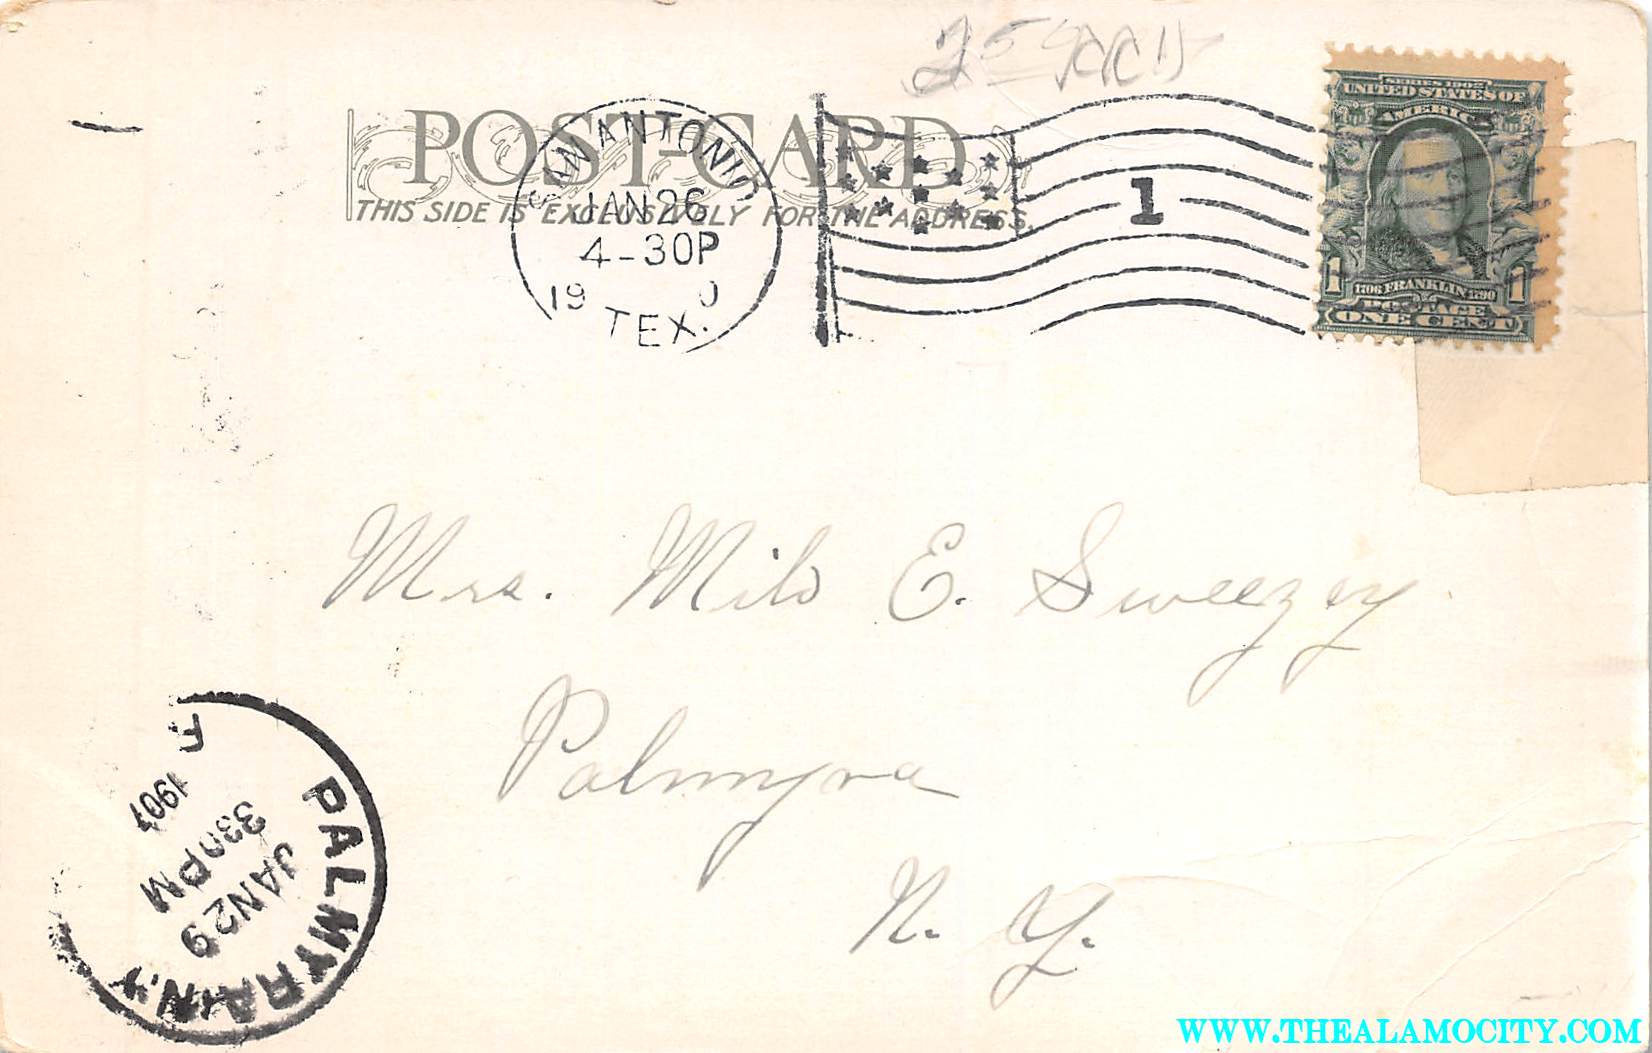 25
POST-CARD
THIS SIDE IS EXCLUSIVELY FOR THE ADDRESS.
SAN ANTONIO
JAN 26
4-30P
19 0
TEX.
1
SERIES 1902
UNITED STATES OF
AMERICA
1706 FRANKLIN 1790
1 1
POSTAGE
ONE CENT
Mrs. Milo E. Sweezey
Palmyra
N. Y.
PALMYRA N.Y.
JAN 29
330PM
1907
WWW.THEALAMOCITY.COM